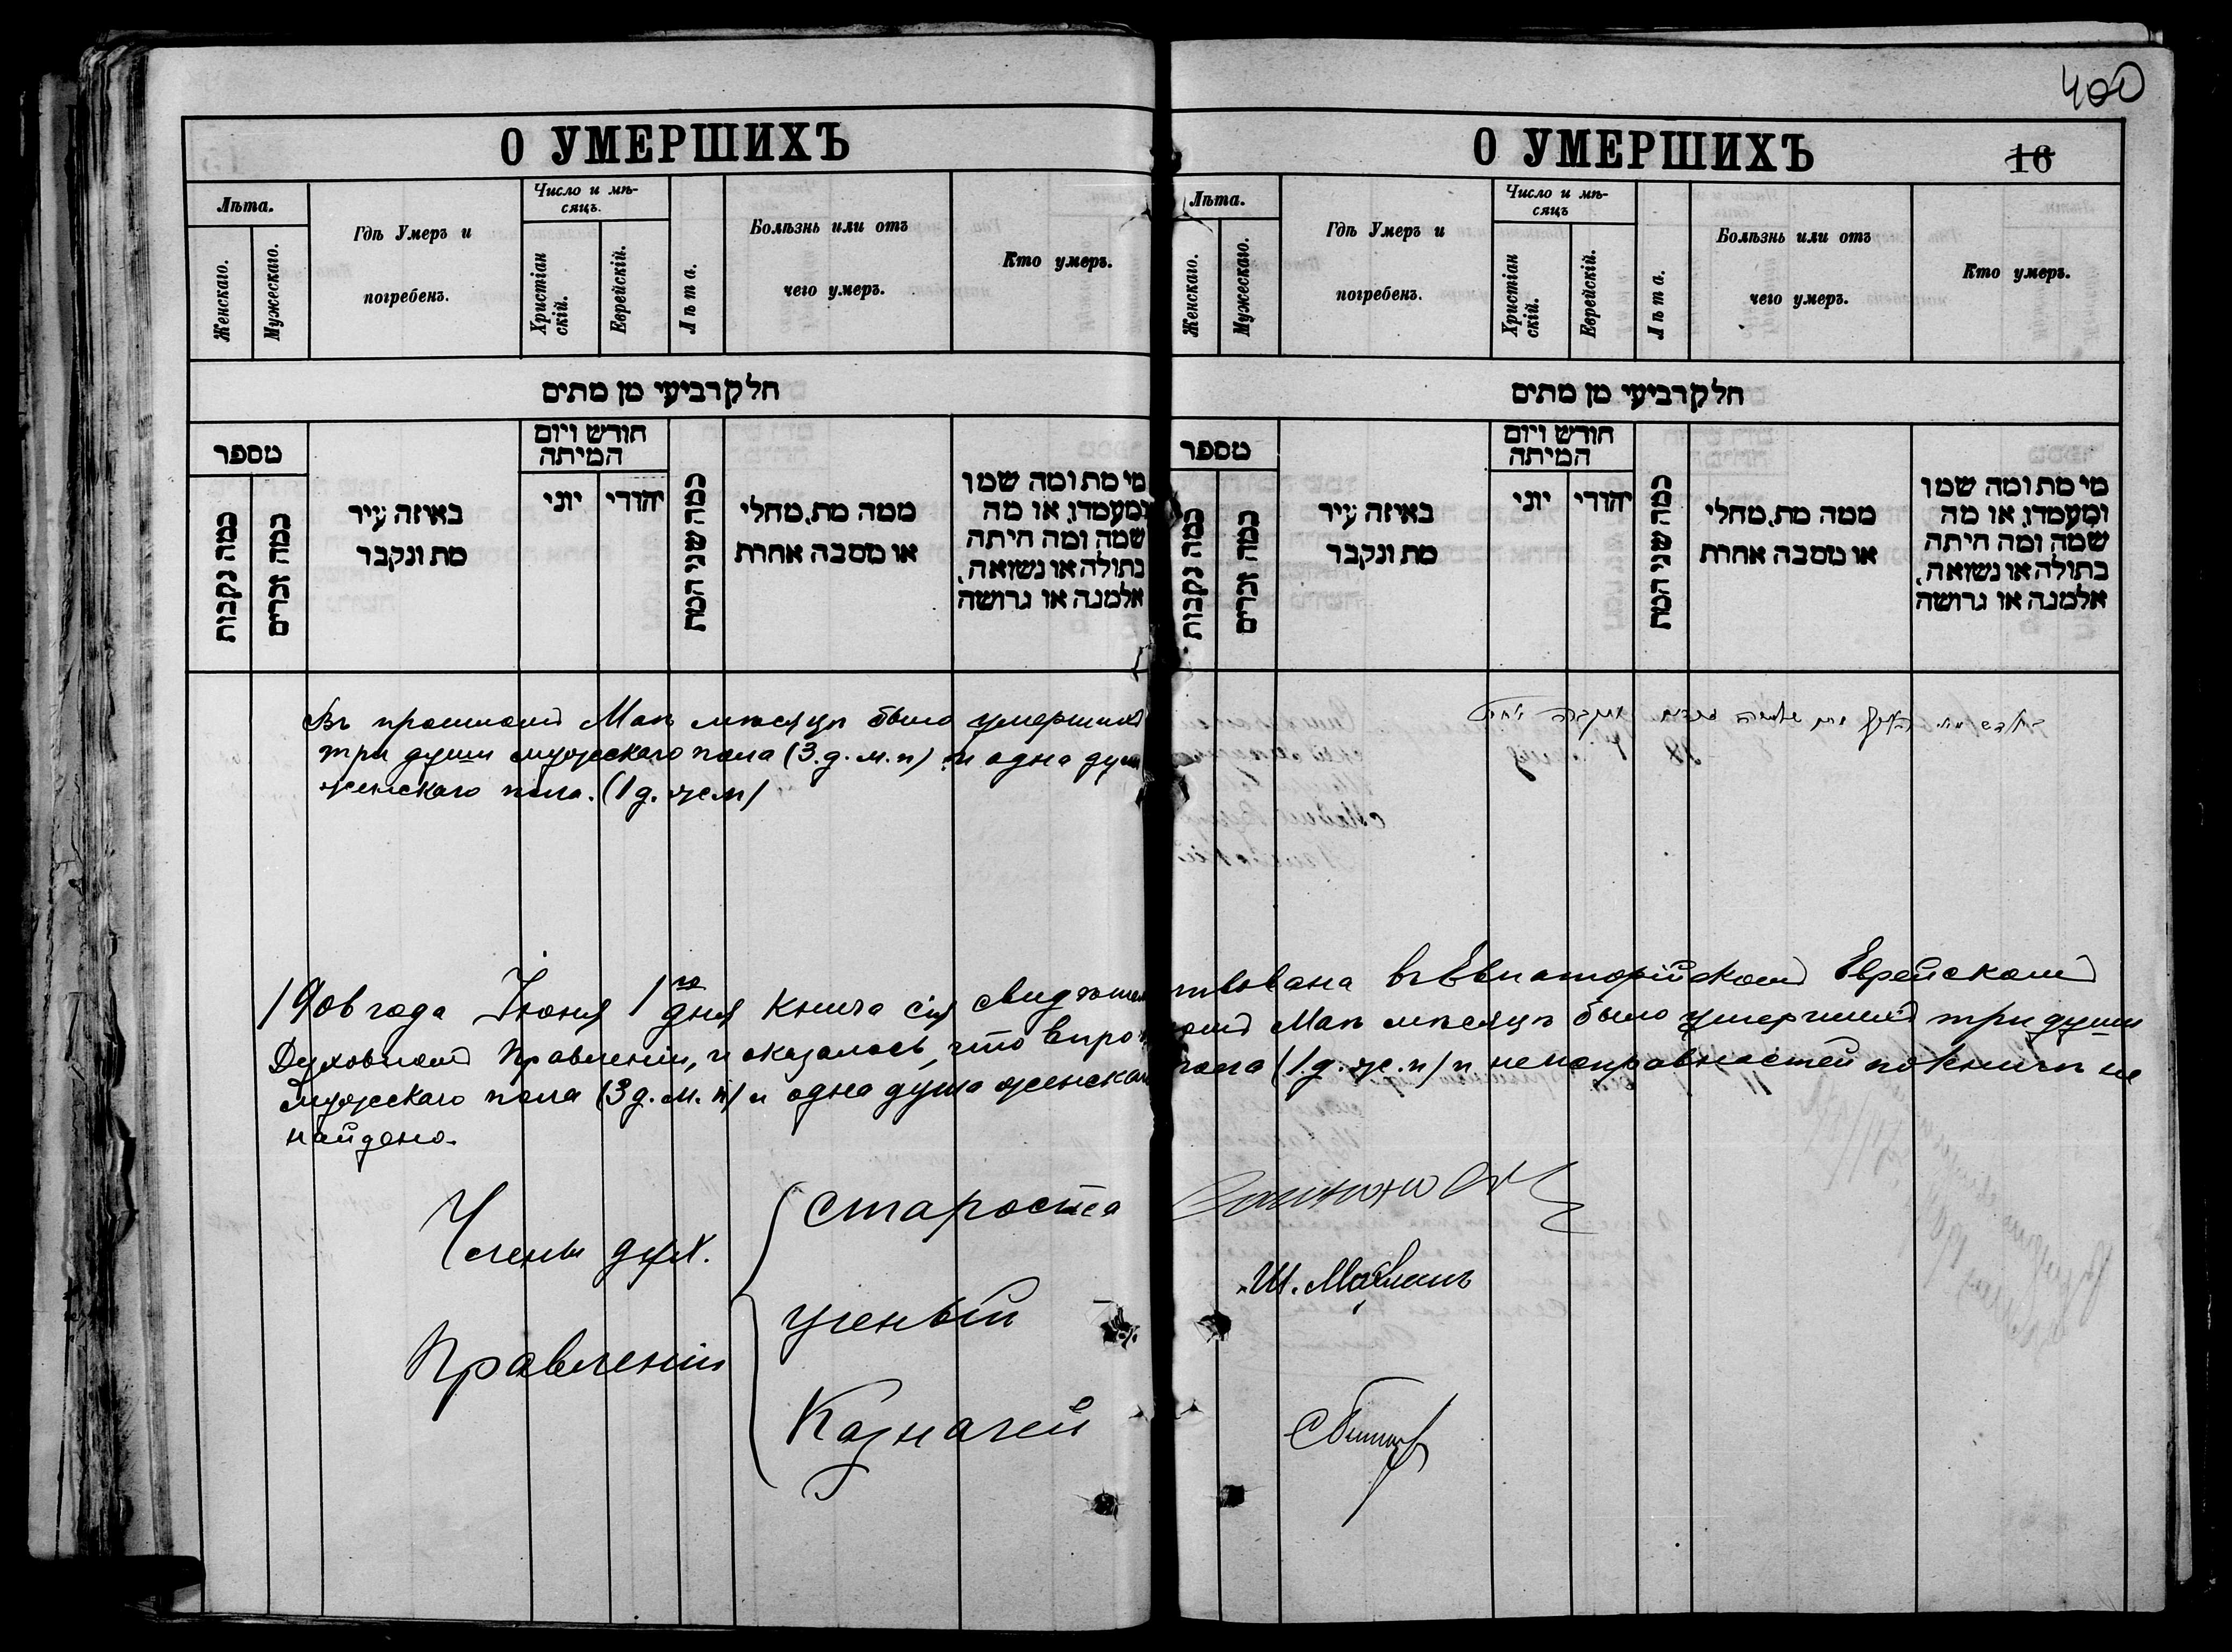 400
О УМЕРШИХЪ
Лѣта.
Женскаго.
Мужескаго.
Гдѣ Умеръ и
погребенъ.
Число и мѣ-
сяцъ.
Христіан
скій.
Еврейскій.
Лѣта.
Болѣзнь или отъ
чего умеръ.
Кто умеръ.
חלק רביעי מן מתים
מספר
כמה נקבות
כמה זכרים
באיזה עיר
מת ונקבר
חודש ויום
המיתה
יוני
יהודי
כמה שני המת
ממה מת, מחלי
או מסבה אחרת
מי מת ומה שמו
ומעמדו, או מה
שמה ומה היתה
בתולה או נשואה,
אלמנה או גרושה
Въ прошломъ Маѣ мѣсяцѣ было умершихъ
три души мужескаго пола (3.д.м.п) и одна душа
женскаго пола. (1 д. же.п)
О УМЕРШИХЪ
16
Лѣта.
Женскаго.
Мужескаго.
Гдѣ Умеръ и
погребенъ.
Число и мѣ-
сяцъ
Христіан
скій.
Еврейскій.
Лѣта.
Болѣзнь или отъ
чего умеръ.
Кто умеръ.
חלק רביעי מן מתים
מספר
כמה נקבות
כמה זכרים
באיזה עיר
מת ונקבר
חודש ויום
המיתה
יוני
יהודי
כמה שני המת
ממה מת, מחלי
או מסבה אחרת
מי מת ומה שמו
ומעמדו, או מה
שמה ומה היתה
בתולה או נשואה,
אלמנה או גרושה
1906 года Іюня 1го дня книга сія свидѣтельствована въ Евпаторійскомъ Еврейскомъ
Духовномъ Правленіи, и оказалось, что въ прошломъ Маѣ мѣсяцѣ было умершихъ три души
мужескаго пола (3 д. м. п) и одна душа женскаго пола (1.д. же.п) и неисправностей по книгѣ не
найдено.
Члены дух.
Правленія
Староста
Ученый
Ш.
Казначей